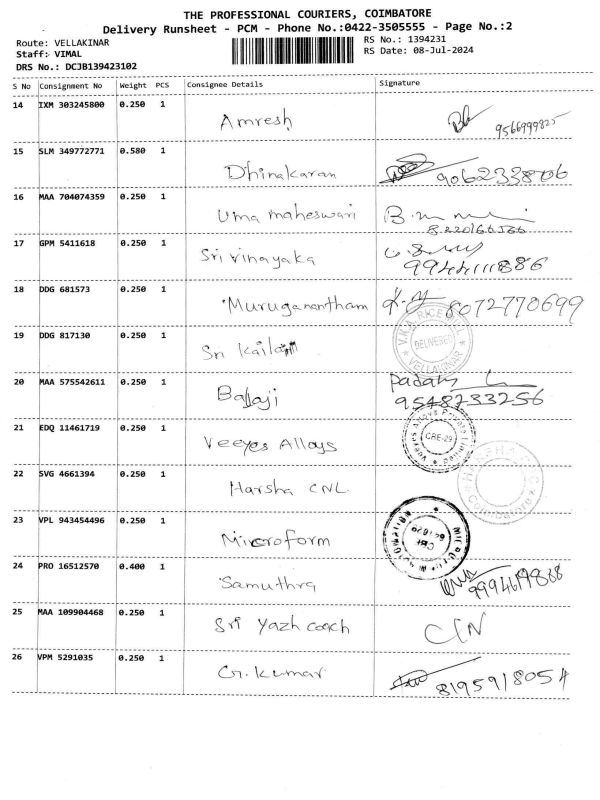 THE PROFESSIONAL COURIERS, COIMBATORE
Delivery Runsheet - PCM - Phone No.:0422-3505555 - Page No.:2
Route: VELLAKINAR
RS No.: 1394231
Staff: VIMAL
RS Date: 08-Jul-2024
DRS No.: DCJB139423102
S No Consignment No Weight PCS Consignee Details Signature
14 IXM 303245800 0.250 1 Amresh 9566999825
15 SLM 349772771 0.580 1 Dhinakaran
16 MAA 704074359 0.250 1 Uma maheswari
17 GPM 5411618 0.250 1 Sri vinayaka
18 DDG 681573 0.250 1 Muruganantham 8072770699
V.K.A. RICE
19 DDG 817130 0.250 1 Sri DELIVERED
VELLAKINAR
20 MAA 575542611 0.250 1 Balaji
9548733256
21 EDQ 11461719 0.250 1 Veeyes Alloys Veeyes Alloys Private Limited CBE-29
22 SVG 4661394 0.250 1 Harsha CNL Coimbatore
23 VPL 943454496 0.250 1 Microform
24 PRO 16512570 0.400 1 Samuthra
25 MAA 109904468 0.250 1 Sri Yazh coach
26 VPM 5291035 0.250 1 G. kumar 8195918054